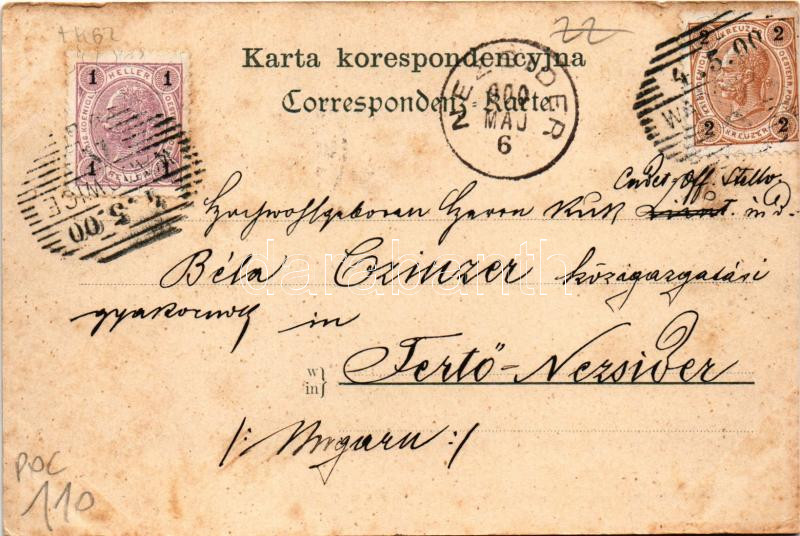 22
Karta korespondencyjna
Correspondenz-Karte.
1 HELLER 1
1 1
2 KREUZER 2
2 KREUZER 2
4.5.00
4.5.00
NEZSIDER
900
MAJ
6
Cadet-Off. Stellv.
Hochwohlgeboren Herrn KuK i. d.
Béla Czinzer közigazgatási
gyakornok in
w
in
Fertő-Nezsider
/: Ungarn :/
POC
110
darabanth